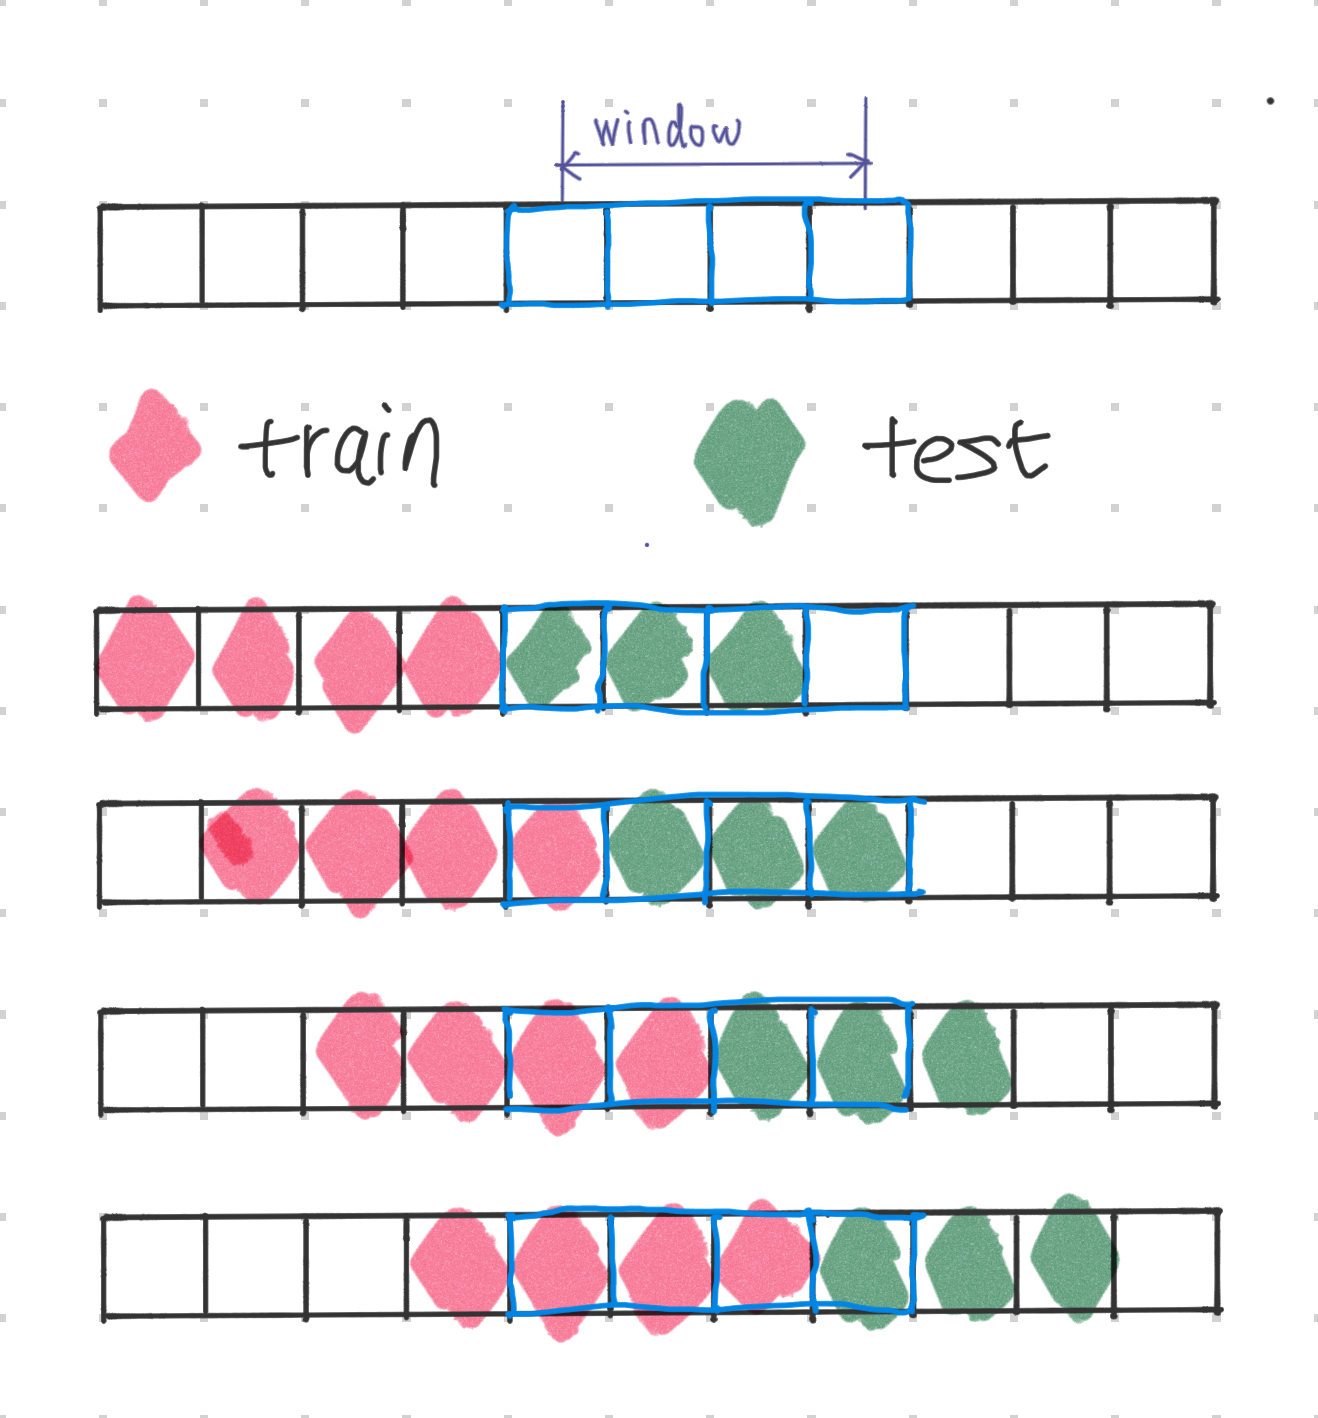 window
train
test